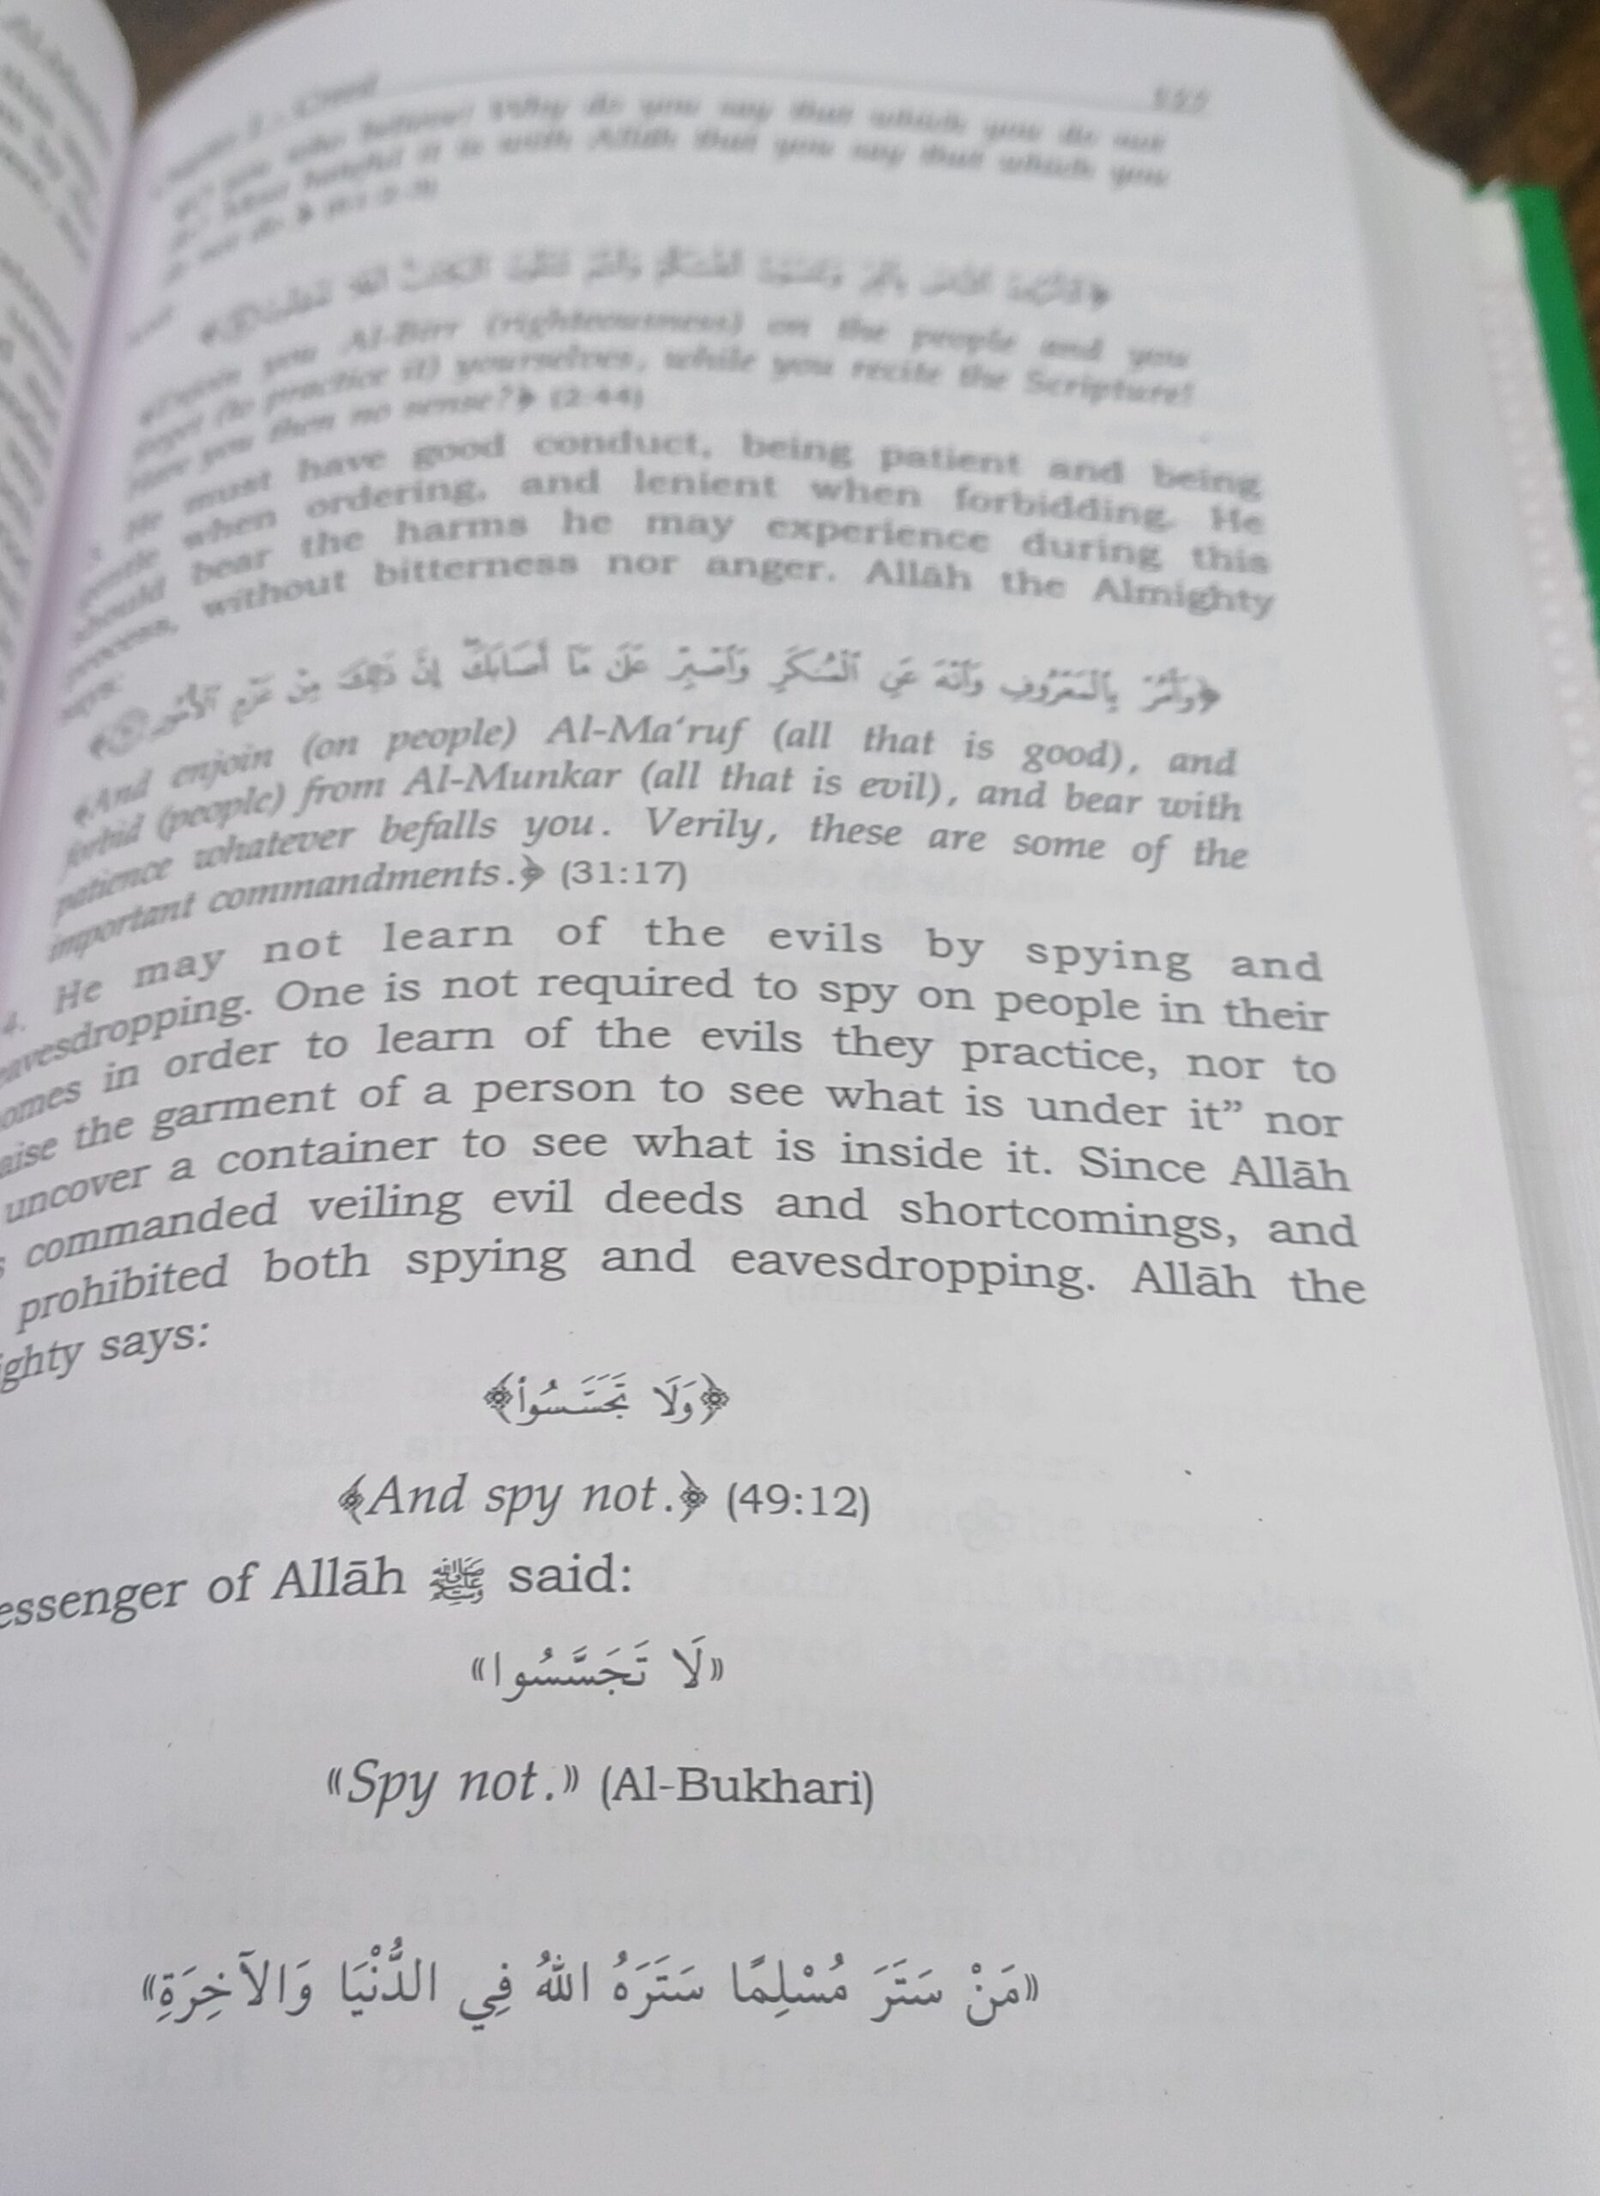 who believe! Why do you say that which you do not
Most hateful it is with Allāh that you say that which you
do not do.
﴿أَتَأْمُرُونَ النَّاسَ بِالْبِرِّ وَتَنسَوْنَ أَنفُسَكُمْ وَأَنتُمْ تَتْلُونَ الْكِتَابَ أَفَلَا تَعْقِلُونَ﴾
﴾Enjoin you Al-Birr (righteousness) on the people and you
forget (to practice it) yourselves, while you recite the Scripture!
Have you then no sense?﴿ (2:44)
He must have good conduct, being patient and being
gentle when ordering, and lenient when forbidding. He
should bear the harms he may experience during this
process, without bitterness nor anger. Allāh the Almighty
says:
﴿وَأْمُرْ بِالْمَعْرُوفِ وَانْهَ عَنِ الْمُنكَرِ وَاصْبِرْ عَلَىٰ مَا أَصَابَكَ إِنَّ ذَٰلِكَ مِنْ عَزْمِ الْأُمُورِ﴾
﴾And enjoin (on people) Al-Ma'ruf (all that is good), and
forbid (people) from Al-Munkar (all that is evil), and bear with
patience whatever befalls you. Verily, these are some of the
important commandments.﴿ (31:17)
4. He may not learn of the evils by spying and
eavesdropping. One is not required to spy on people in their
omes in order to learn of the evils they practice, nor to
aise the garment of a person to see what is under it” nor
uncover a container to see what is inside it. Since Allāh
s commanded veiling evil deeds and shortcomings, and
prohibited both spying and eavesdropping. Allāh the
ighty says:
﴿وَلَا تَجَسَّسُوا﴾
﴾And spy not.﴿ (49:12)
essenger of Allāh ﷺ said:
«لَا تَجَسَّسُوا»
«Spy not.» (Al-Bukhari)
«مَنْ سَتَرَ مُسْلِمًا سَتَرَهُ اللهُ فِي الدُّنْيَا وَالآخِرَةِ»